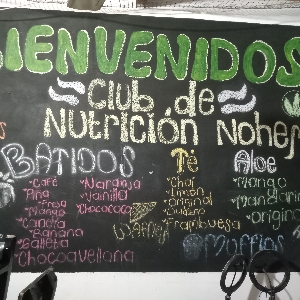 BIENVENIDOS
Club de
Nutrición Nohe
BATIDOS
Café
Piña
Fresa
Mango
Canela
Banana
Galleta
Chocoavellana
Naranja
Vainilla
Té
Chai
Limón
Original
Durazno
Frambuesa
Waffles
Aloe
Mango
Mandarin
Origina
Muffins